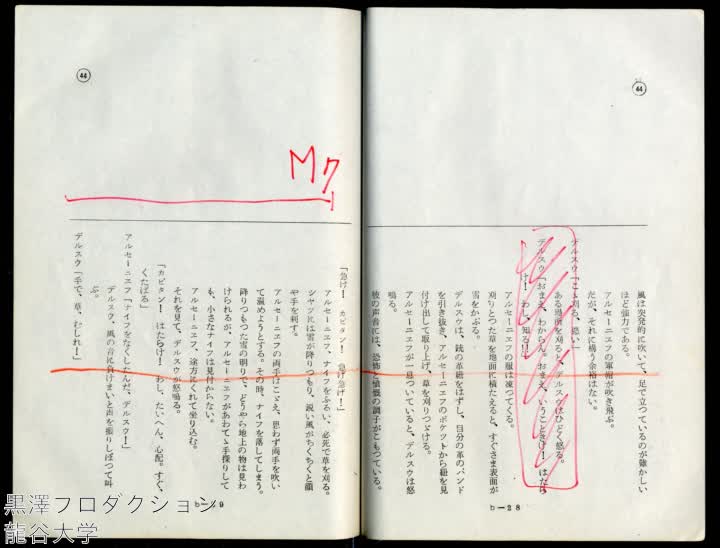 44
風は突発的に吹いて、足で立っているのが難かしい
ほど強力である。
アルセーニエフの軍帽が吹き飛ぶ。
だが、それに構う余裕はない。
デルスウ「こゝ刈る、悪い」
ある場所を刈ると、デルスウはひどく怒る。
デルスウ「おまえ、わからん。おまえ、いうこときけ！ はたら
け！ わし、知る！」
アルセーニエフの服は凍つてくる。
刈りとつた草を地面に横たえると、すぐさま表面が
雪をかぶる。
デルスウは、銃の革紐をはずし、自分の革のバンド
を引き抜き、アルセーニエフのポケットから紐を見
付け出して取り上げ、草を刈りつゞける。
アルセーニエフが一息ついていると、デルスウは怒
鳴る。
彼の声音には、恐怖と憤慨の調子がこもつている。
b－28
44
M7
「急げ！ カピタン！ 急げ急げ！」
アルセーニエフ、ナイフをふるい、必死で草を刈る。
シャツには雪が降りつもり、鋭い風がちくちくと顔
や手を刺す。
アルセーニエフの両手はこゞえ、思わず両手を吹い
て温めようとする。その時、ナイフを落してしまう。
降りつもつた雪の明りで、どうやら地上の物は見わ
けられるが、アルセーニエフがあわてゝ手探りして
も、小さなナイフは見付からない。
アルセーニエフ、途方にくれて坐り込む。
それを見て、デルスウが怒鳴る。
「カピタン！ はたらけ！ わし、たいへん、心配。すぐ、
くたばる」
アルセーニエフ「ナイフをなくしたんだ、デルスウ！」
デルスウ、風の音に負けまいと声を振りしぼつて叫
ぶ。
デルスウ「手で、草、むしれ！」
黒澤プロダクション
龍谷大学